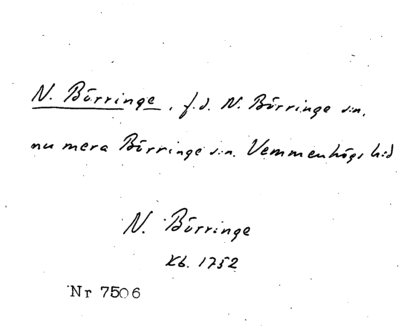 N. Börringe, f.d. N. Börringe s:n,
nu mera Börringe s:n. Vemmenhögs hd
N. Börringe
Kb. 1752
Nr 7506